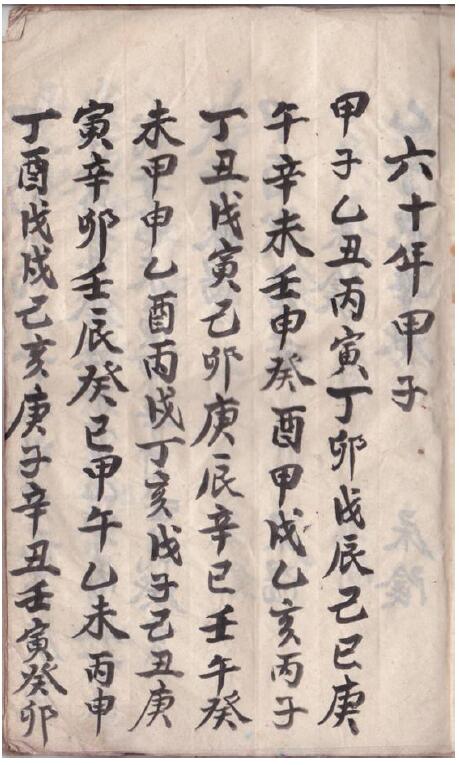 六十年甲子
甲子乙丑丙寅丁卯戊辰己巳庚
午辛未壬申癸酉甲戌乙亥丙子
丁丑戊寅己卯庚辰辛巳壬午癸
未甲申乙酉丙戌丁亥戊子己丑庚
寅辛卯壬辰癸巳甲午乙未丙申
丁酉戊戌己亥庚子辛丑壬寅癸卯